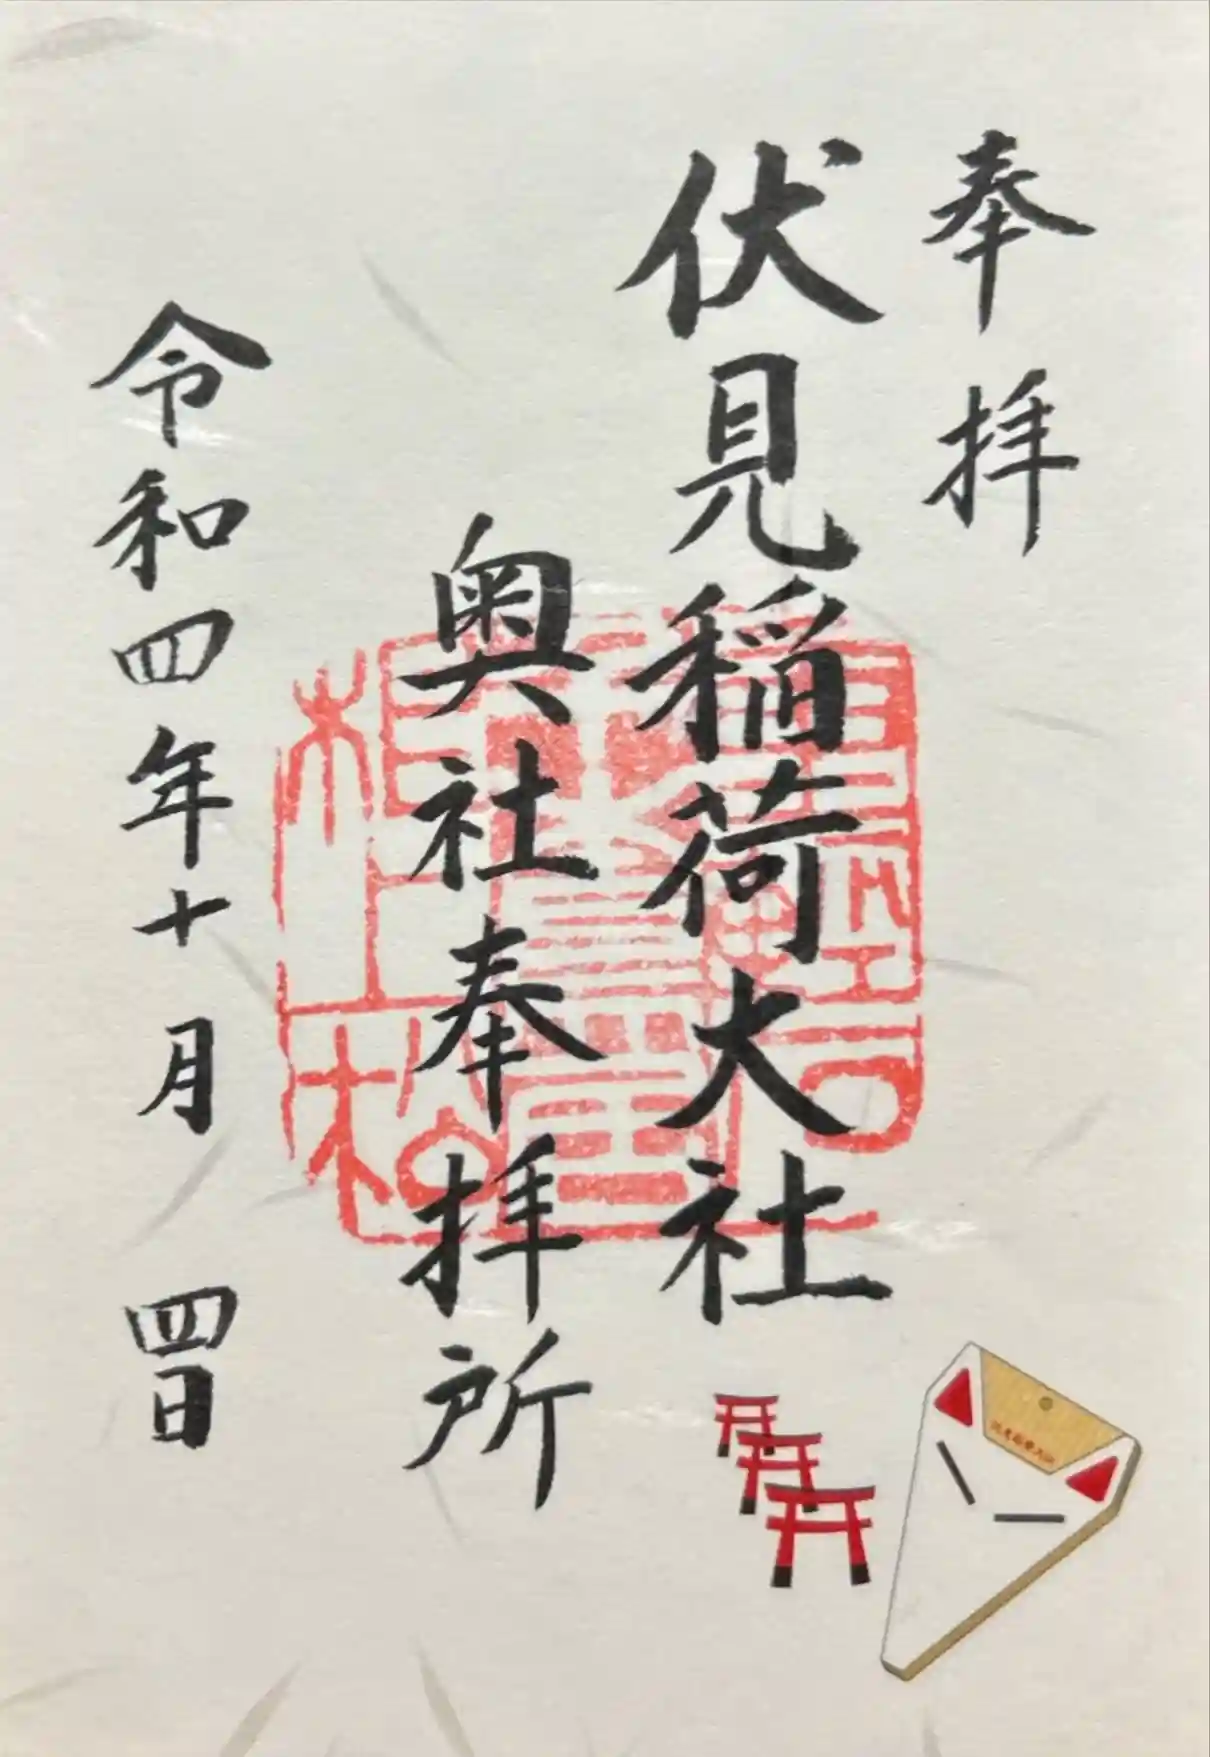 奉拝
伏見稲荷大社
奥社奉拝所
令和四年十月四日